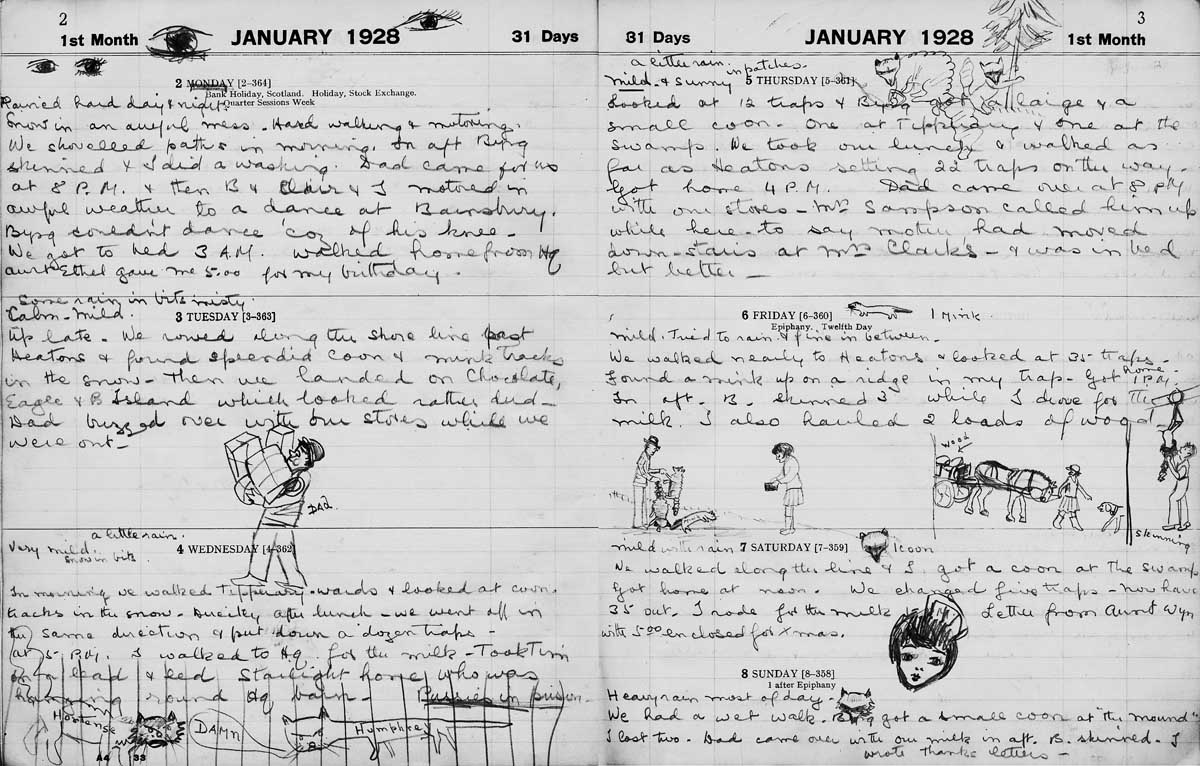 2
1st Month
JANUARY 1928
31 Days
2 MONDAY [2-364]
Bank Holiday, Scotland. Holiday, Stock Exchange.
Quarter Sessions Week
Rained hard day & night.
Snow in an awful mess. Hard walking & motoring.
We shovelled paths in morning. In aft Byng
skinned & I did a washing. Dad came for us
at 8 P.M. & then B & Clair & I motored in
awful weather to a dance at Bainsbury.
Byng couldn't dance 'coz of his knee.
We got to bed 3 A.M. walked home from Hq
aunt Ethel gave me 5.00 for my birthday.
Some rain in bits misty.
Calm - mild.
3 TUESDAY [3-363]
Up late. We rowed along the shore line past
Heatons & found splendid coon & mink tracks
in the snow - then we landed on Chocolate,
Eagle & B Island which looked rather dud -
Dad buzzed over with our stores while we
were out -
DAD.
a little rain.
Very mild.
snow in bits.
4 WEDNESDAY [4-362]
In morning we walked Tipperary-wards & looked at coon
tracks in the snow. Directly after lunch - we went off in
the same direction & put down a dozen traps -
at 5 P.M. I walked to Hq for the milk - Took Tim
on a lead & led Starlight home who was
round Hq barn - Pussies in prison.
Hortense
DAMN
Humphrey
A4 33
31 Days
JANUARY 1928
1st Month
3
a little rain
in patches.
mild & sunny
5 THURSDAY [5-361]
Looked at 12 traps & Byng got a large & a
small coon. One at Tipperary & one at the
swamp. We took our lunch & walked as
far as Heatons setting 22 traps on the way.
Got home 4 P.M. Dad came over at 8 P.M.
with our stores - Mrs Sampson called him up
while here - to say mother had moved
down-stairs at Mrs Clark's - & was in bed
but better -
6 FRIDAY [6-360]
1 Mink.
Epiphany. Twelfth Day
Mild. Tried to rain & fine in between.
We walked nearly to Heatons & looked at 35 traps.
Found a mink up on a ridge in my trap - Got home 1 P.M.
In aft. B. skinned 3 while I drove for the
milk. I also hauled 2 loads of wood.
wood
skinning
mild with rain
7 SATURDAY [7-359]
1 coon
We walked along the line & I got a coon at the swamp
Got home at noon. We changed five traps - now have
35 out. I rode for the milk
Letter from Aunt Wyn
with 5.00 enclosed for Xmas.
8 SUNDAY [8-358]
1 after Epiphany
Heavy rain most of day.
We had a wet walk. Byng got a small coon at "the mound"
I lost two. Dad came over with our milk in aft. B. skinned. I
wrote thanks letters -